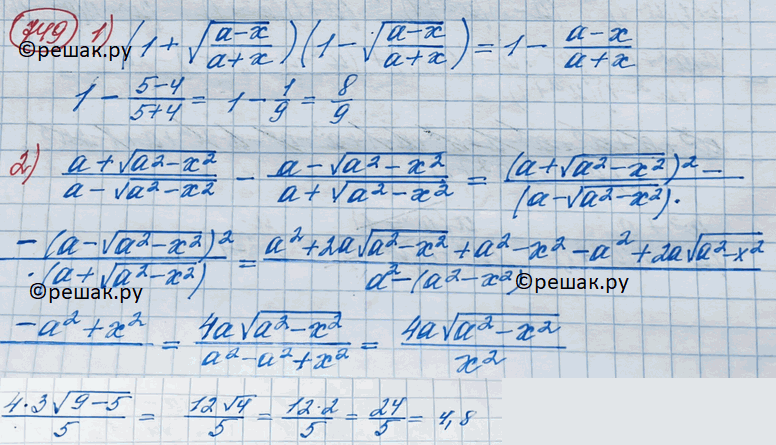 749 1) (1 + √((a-x)/(a+x)))(1 - √((a-x)/(a+x))) = 1 - (a-x)/(a+x)
©решак.ру
1 - (5-4)/(5+4) = 1 - 1/9 = 8/9
2) (a+√(a²-x²))/(a-√(a²-x²)) - (a-√(a²-x²))/(a+√(a²-x²)) = ((a+√(a²-x²))² -)/((a-√(a²-x²))·)
(-(a-√(a²-x²))²)/(·(a+√(a²-x²))) = (a²+2a√(a²-x²)+a²-x²-a²+2a√(a²-x²))/(a²-(a²-x²))
©решак.ру ©решак.ру
-a²+x² = (4a√(a²-x²))/(a²-a²+x²) = (4a√(a²-x²))/x²
(4·3√(9-5))/5 = (12√4)/5 = (12·2)/5 = 24/5 = 4,8